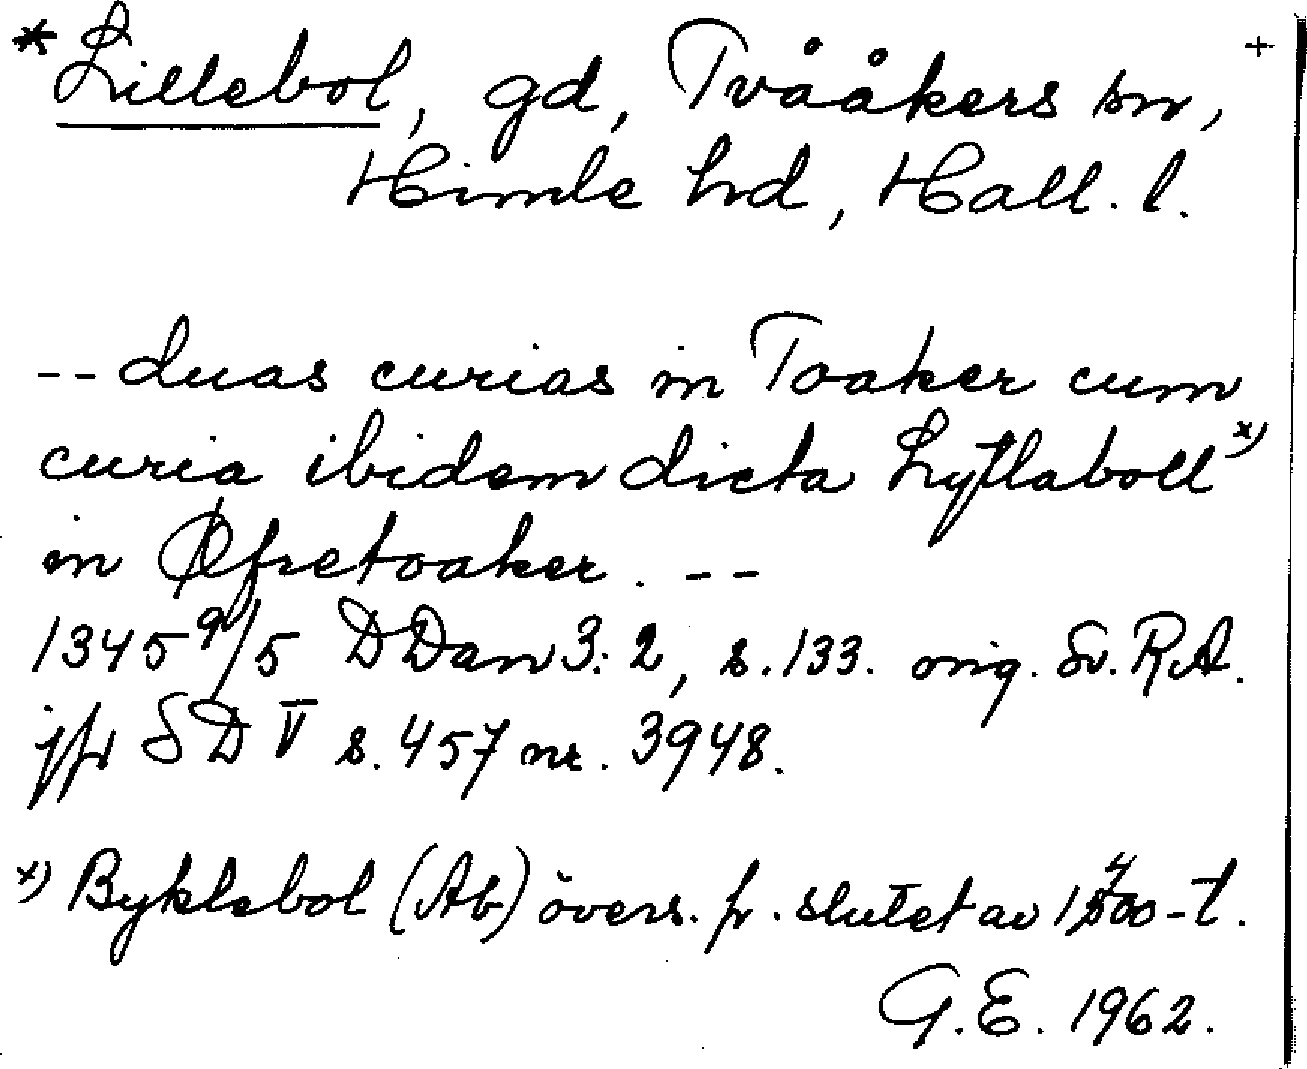 *Lillebol, gd, Tvååkers sn, +
Himle hd, Hall. l.
-- duas curias in Toaker cum
curia ibidem dicta Lytlaboll x)
in Øfretoaker. --
1345 9/5 DDan 3:2, s. 133. orig. Sv. RA.
jfr SD V s. 457 nr. 3948.
x) Byklebol (Ab) övers. fr. slutet av 1400-t.
G.E. 1962.